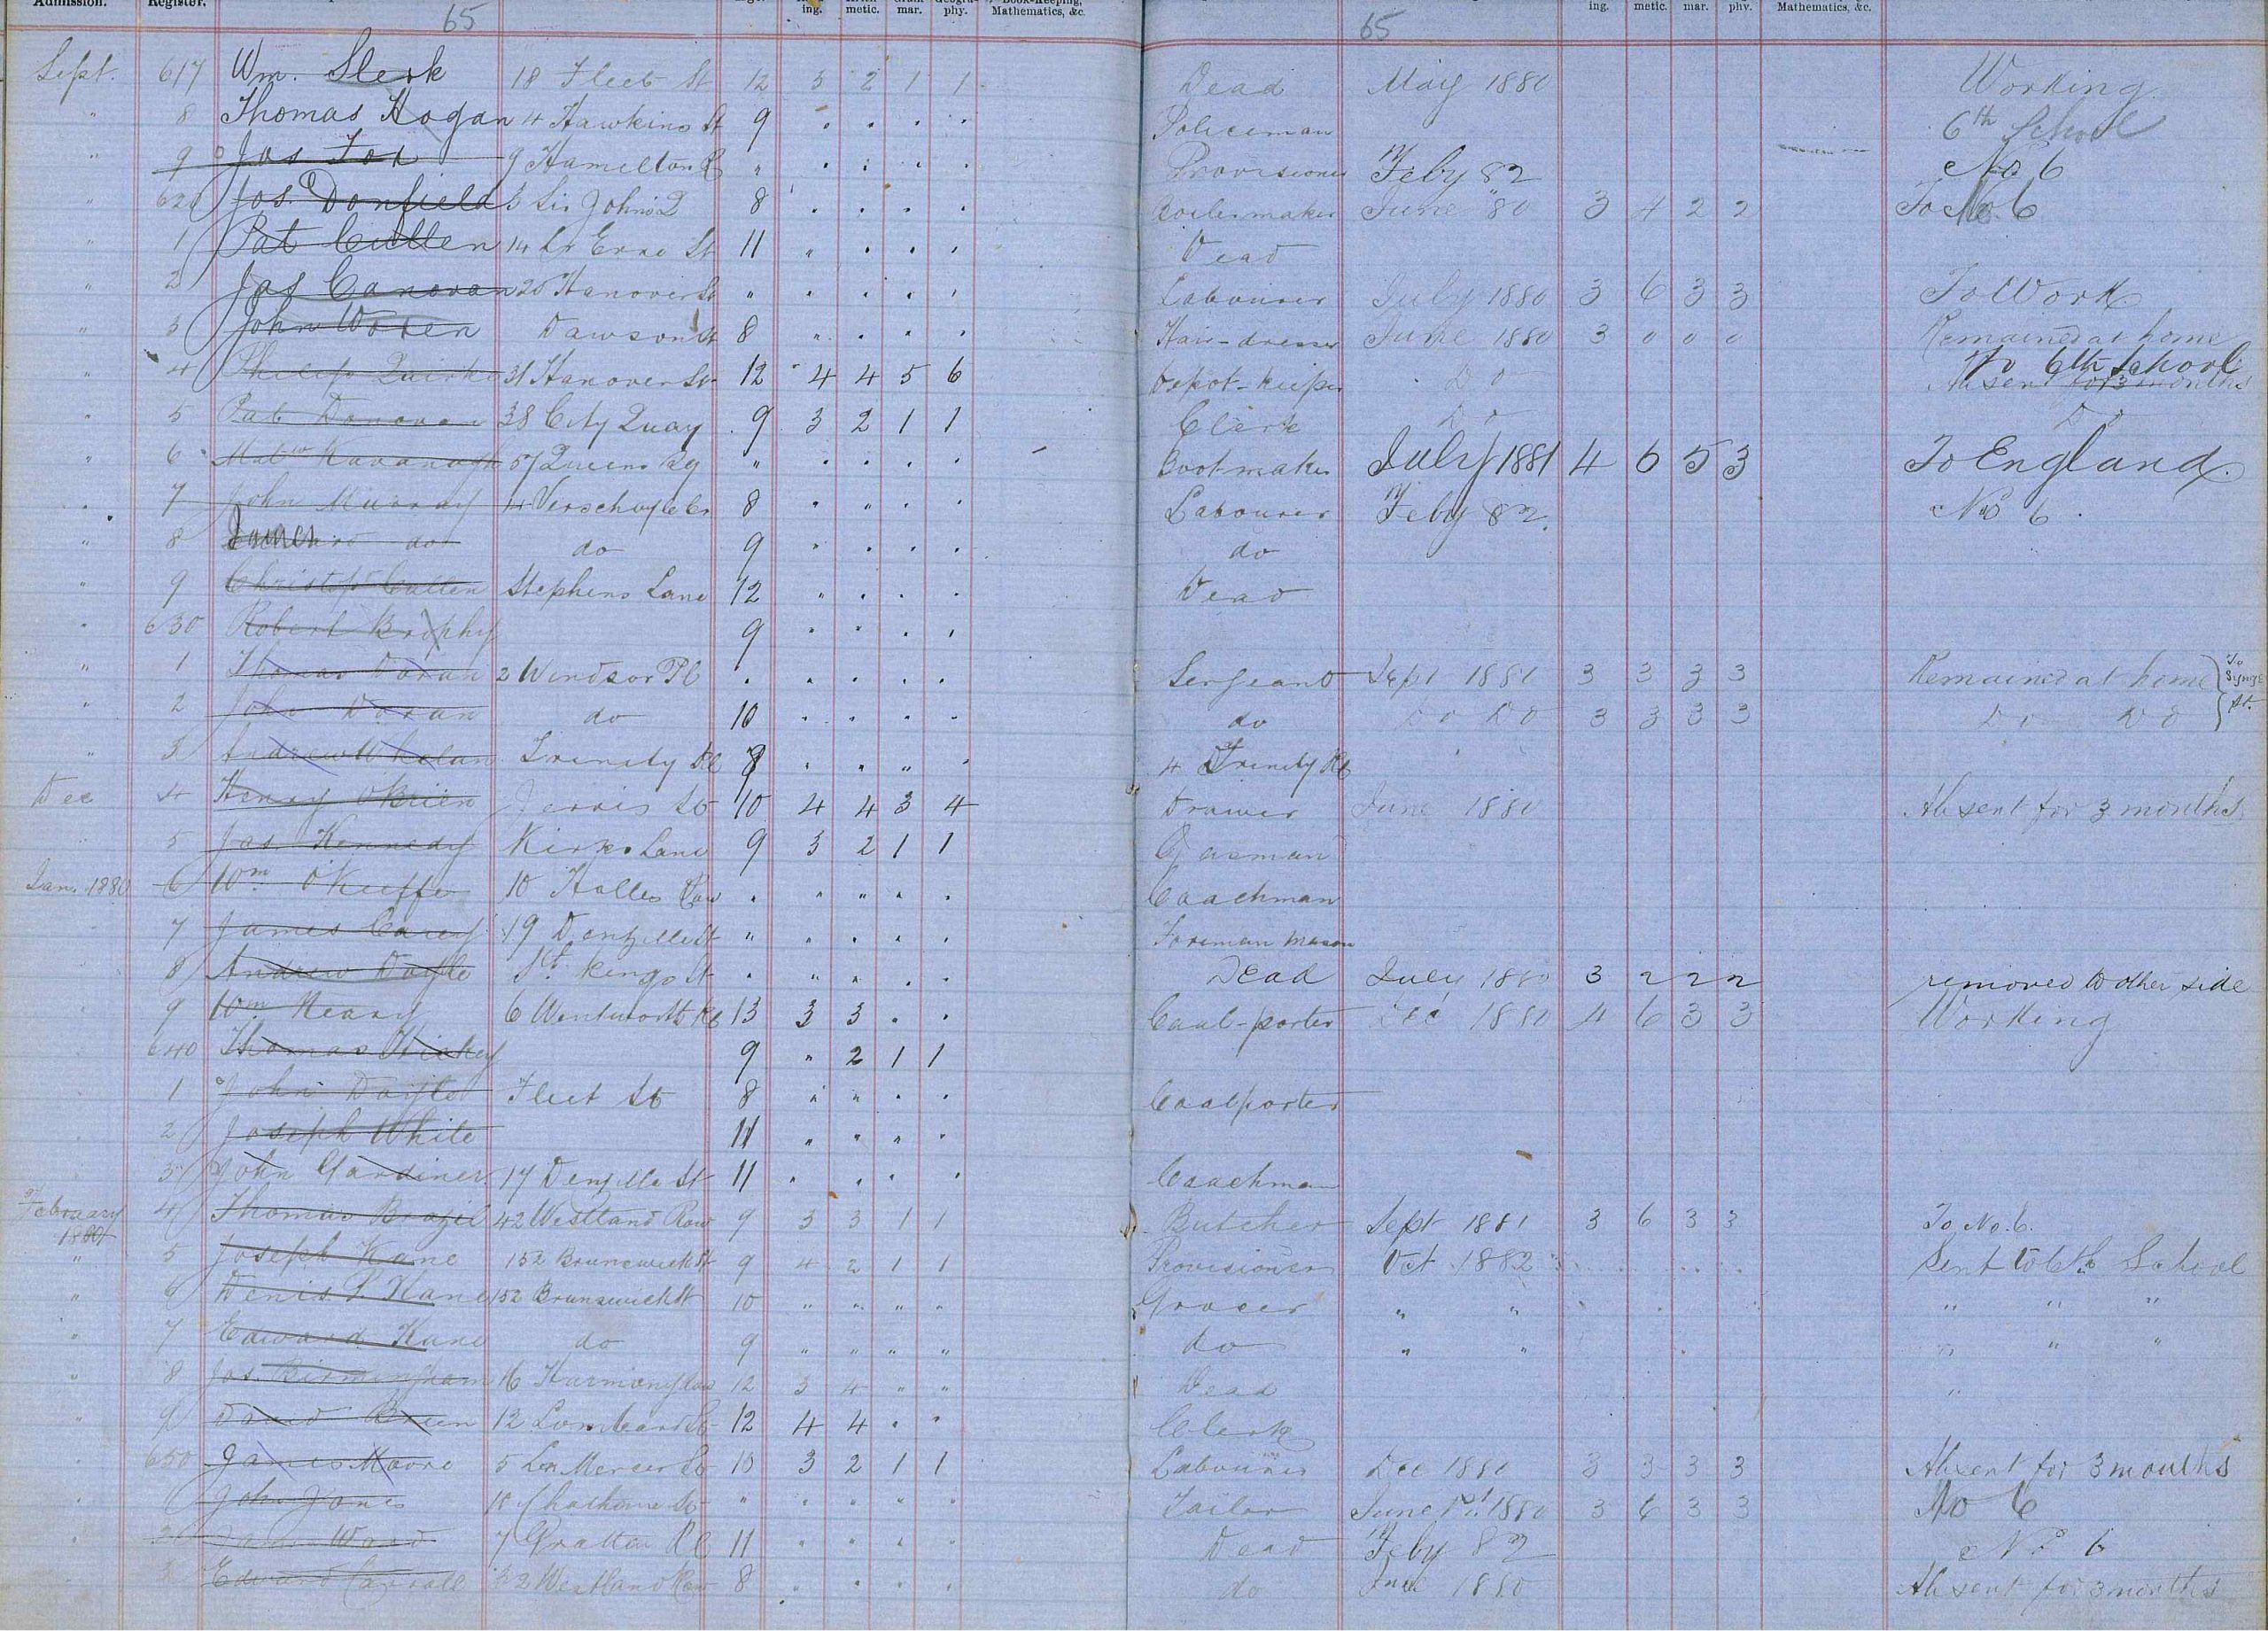 Admission. Register. 65 ing. metic. mar. phy. Book-Keeping, Mathematics, &c. 65 ing. metic. mar. phy. Mathematics, &c.
Sept. 617 Wm. Slerk 18 Fleet St 12 3 2 1 1 Dead May 1880 Working
" 8 Thomas Hogan 4 Hawkins St 9 " " " " Policeman 6th School
" 9 Jos Fox 9 Hamilton R " " " " " Provisioner Feby 82 No 6
" 620 Jos. Donfield 3 Sir John's Q 8 " " " " Boilermaker June " 80 3 4 2 2 To No 6
" 1 Pat Cullen 14 Lr Erne St 11 " " " " Dead
" 2 Jas Canavan 20 Hanover St " " " " " Labourer July 1880 3 6 3 3 To Work
" 3 John Woren Dawson St 8 " " " " Hair-dresser June 1880 3 0 0 0 Remained at home
" 4 Philip Quirke 31 Hanover St 12 4 4 5 6 Depot-keeper Do To 6th School
Absent for 3 months
" 5 Pat Donovan 38 City Quay 9 3 2 1 1 Clerk Do Do
" 6 Matw Kavanagh 57 Queens Sq " " " " " Bootmaker July 1881 4 6 5 3 To England.
" 7 John Murray 4 Verschoyle Ct 8 " " " " Labourer Feby 82. No 6.
" 8 James do do 9 " " " " do
" 9 Christopr Cullen Stephens Lane 12 " " " " Dead
" 630 Robert Brophy 9 " " " "
" 1 Thomas Doran 2 Windsor Pl " " " " " Sergeant Sept 1881 3 3 3 3 Remained at home To Synge St.
" 2 John Doran do 10 " " " " do Do Do 3 3 3 3 Do Do
" 3 Andrew Whelan Trinity Pl 9 " " " " 4 Trinity Pl
Dec 4 Henry O'Brien Jervis St 10 4 4 3 4 Drawer June 1880 Absent for 3 months
5 Jas. Kennedy Kirks Lane 9 3 2 1 1 Gasman
Jan. 1880 6 Wm O'Keeffe 10 Halles Row " " " " " Coachman
7 James Carey 19 Denzille St " " " " " Foreman Mason
8 Andrew Doyle Sth. Kings St " " " " " Dead July 1880 3 2 2 2 removed to other side
9 Wm Neary 6 Wentworth Pl 13 3 3 " " Coal-porter Dec 1880 4 6 3 3 Working
640 Thomas Hickey 9 " 2 1 1
1 John Doyle Fleet St 8 " " " " Coalporter
2 Joseph White 11 " " " "
3 John Gardiner 17 Denzille St 11 " " " " Coachman
February 1880 4 Thomas Brazil 42 Westland Row 9 3 3 1 1 Butcher Sept 1881 3 6 3 3 To No. 6.
" 5 Joseph Kane 152 Brunswick St 9 4 2 1 1 Provisioner Oct 1882 Sent to 6th School
" 6 Denis L Kane 152 Brunswick St 10 " " " " Grocer " " " " "
" 7 Edward Kane do 9 " " " " do " " " " "
" 8 Jos. Birmingham 16 Harmony Row 12 3 4 " " Dead "
" 9 David Breen 12 Lombard St 12 4 4 " " Clerk
650 James Moore 5 Lr Mercer St 10 3 2 1 1 Labourer Dec 1880 3 3 3 3 Absent for 3 months
John Jones 18 Chatham St " " " " " Tailor June 1st. 1880 3 6 3 3 No 6
2 James Ward 7 Grattan Pl 11 " " " " Dead Feby 82 No 6
3 Edward Carroll 32 Westland Row 8 " " " " do June 1880 Absent for 3 months